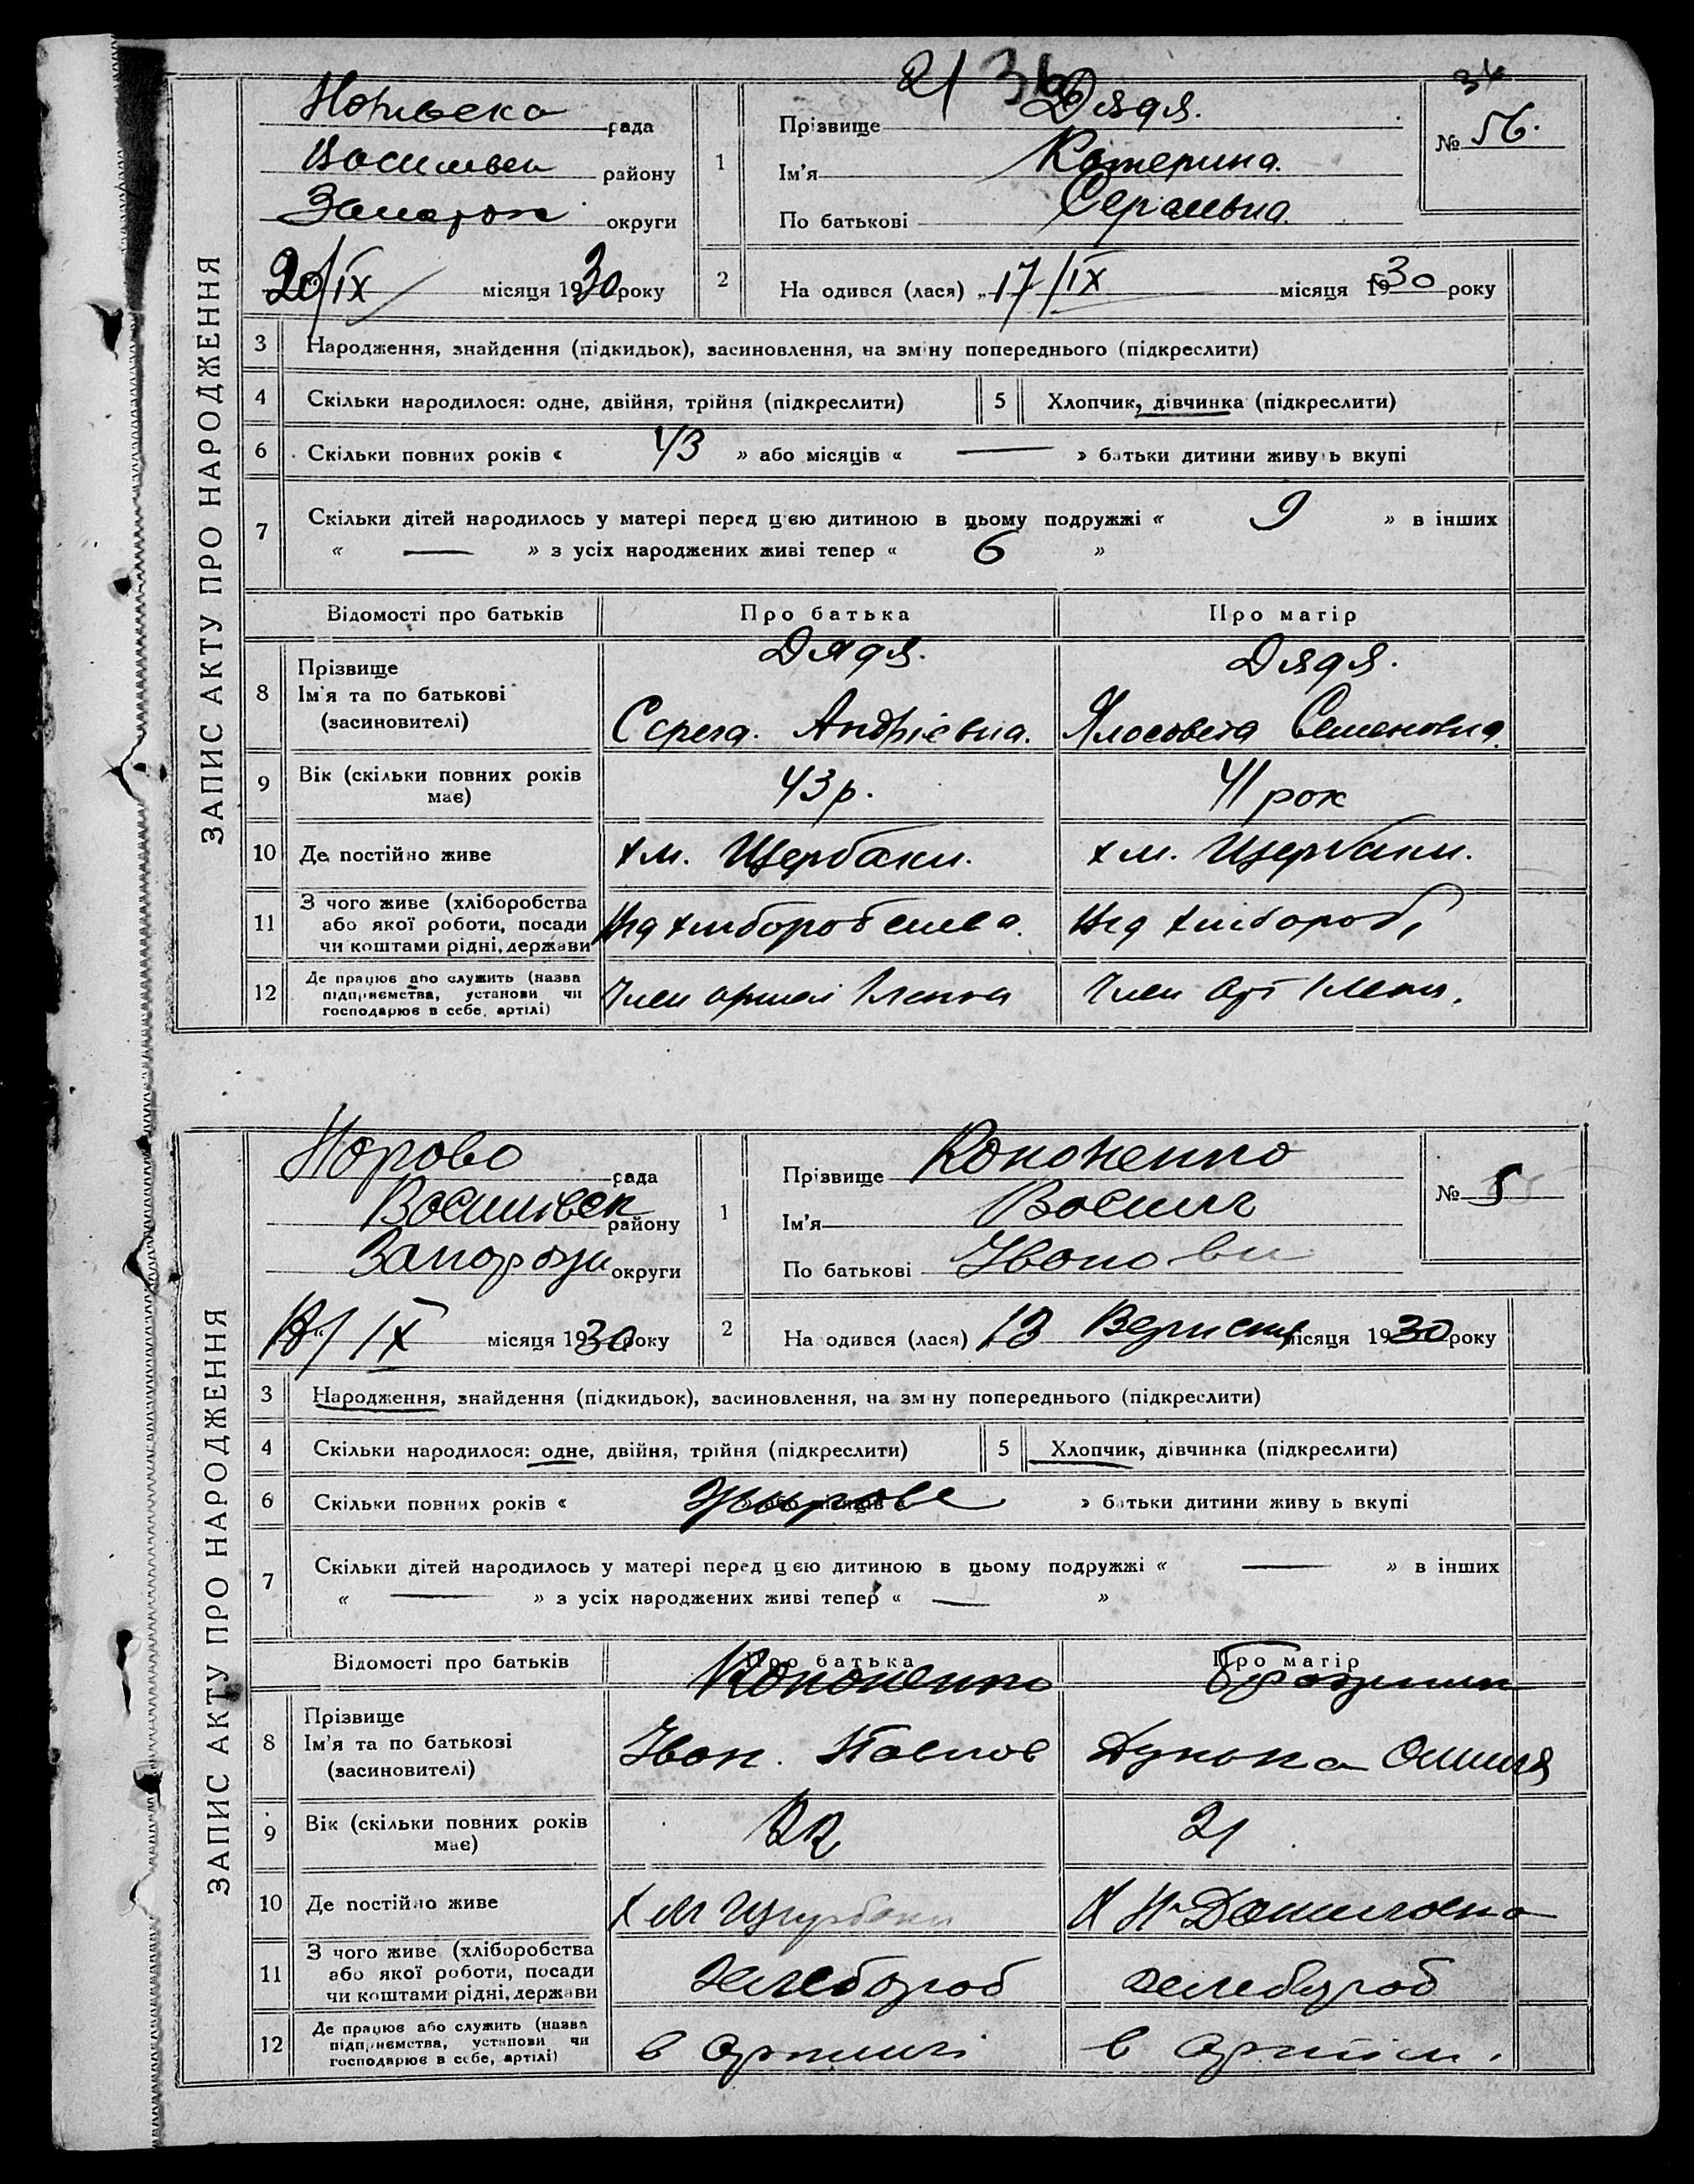 21 36
34
ЗАПИС АКТУ ПРО НАРОДЖЕННЯ
рада
району
округи
20/IX місяця 1930 року
1
Прізвище Дядя.
Ім'я Катерина.
По батькові
№ 56.
2
На одився (лася) „17/IX місяця 1930 року
3 Народження, знайдення (підкидьок), засиновлення, на зміну попереднього (підкреслити)
4 Скільки народилося: одне, двійня, трійня (підкреслити)
5 Хлопчик, дівчинка (підкреслити)
6 Скільки повних років « 43 » або місяців « — » батьки дитини живуть вкупі
7 Скільки дітей народилось у матері перед цією дитиною в цьому подружжі « 9 » в інших
« — » з усіх народжених живі тепер « 6 »
Відомості про батьків Про батька Про матір
8 Прізвище
Ім'я та по батькові
(засиновителі)
Дядя.
Сєрега. Андрієвна.
Дядя.
Ялосовета Семеновна.
9 Вік (скільки повних років
має)
43 р.
41 рок
10 Де постійно живе
хм. Щербаки.
хм. Щербаки.
11 З чого живе (хліборобства
або якої роботи, посади
чи коштами рідні, держави
12 Де працює або служить (назва
підприємства, установи чи
господарює в себе, артілі)
Член артілі
Член Арт
ЗАПИС АКТУ ПРО НАРОДЖЕННЯ
рада
Василівск району
Запоріжж округи
18/IX місяця 1930 року
1
Прізвище Кононенко
Ім'я Василь
По батькові Іванови
№ 5
2
На одився (лася) 13 місяця 1930 року
3 Народження, знайдення (підкидьок), засиновлення, на зм ну попереднього (підкреслити)
4 Скільки народилося: одне, двійня, трійня (підкреслити)
5 Хлопчик, дівчинка (підкреслити)
6 Скільки повних років « » батьки дитини живу ь вкупі
7 Скільки дітей народилось у матері перед цією дитиною в цьому подружжі « — » в інших
« — » з усіх народжених живі тепер « — »
Відомості про батьків Про батька Про матір
8 Прізвище
Ім'я та по батькові
(засиновителі)
Кононенко
Іван. Павлов
9 Вік (скільки повних років
має)
22
21
10 Де постійно живе
х м Щербаки
11 З чого живе (хліборобства
або якої роботи, посади
чи коштами рідні, держави
хлебороб
хлебороб
12 Де працює або служить (назва
підприємства, установи чи
господарює в себе, артілі)
в артилі
в артіли.